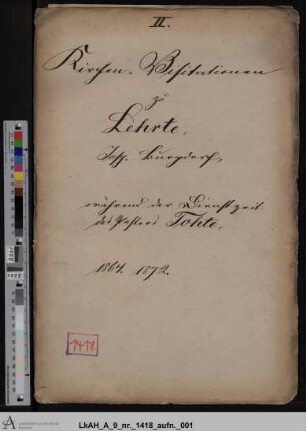 II.
Kirchen-Visitationen
zu
Lehrte,
Insp. Burgdorf,
während der Dienstzeit
des Pastors Tohte,
1864. 1872.
1418
LkAH_A_9_nr._1418_aufn._001